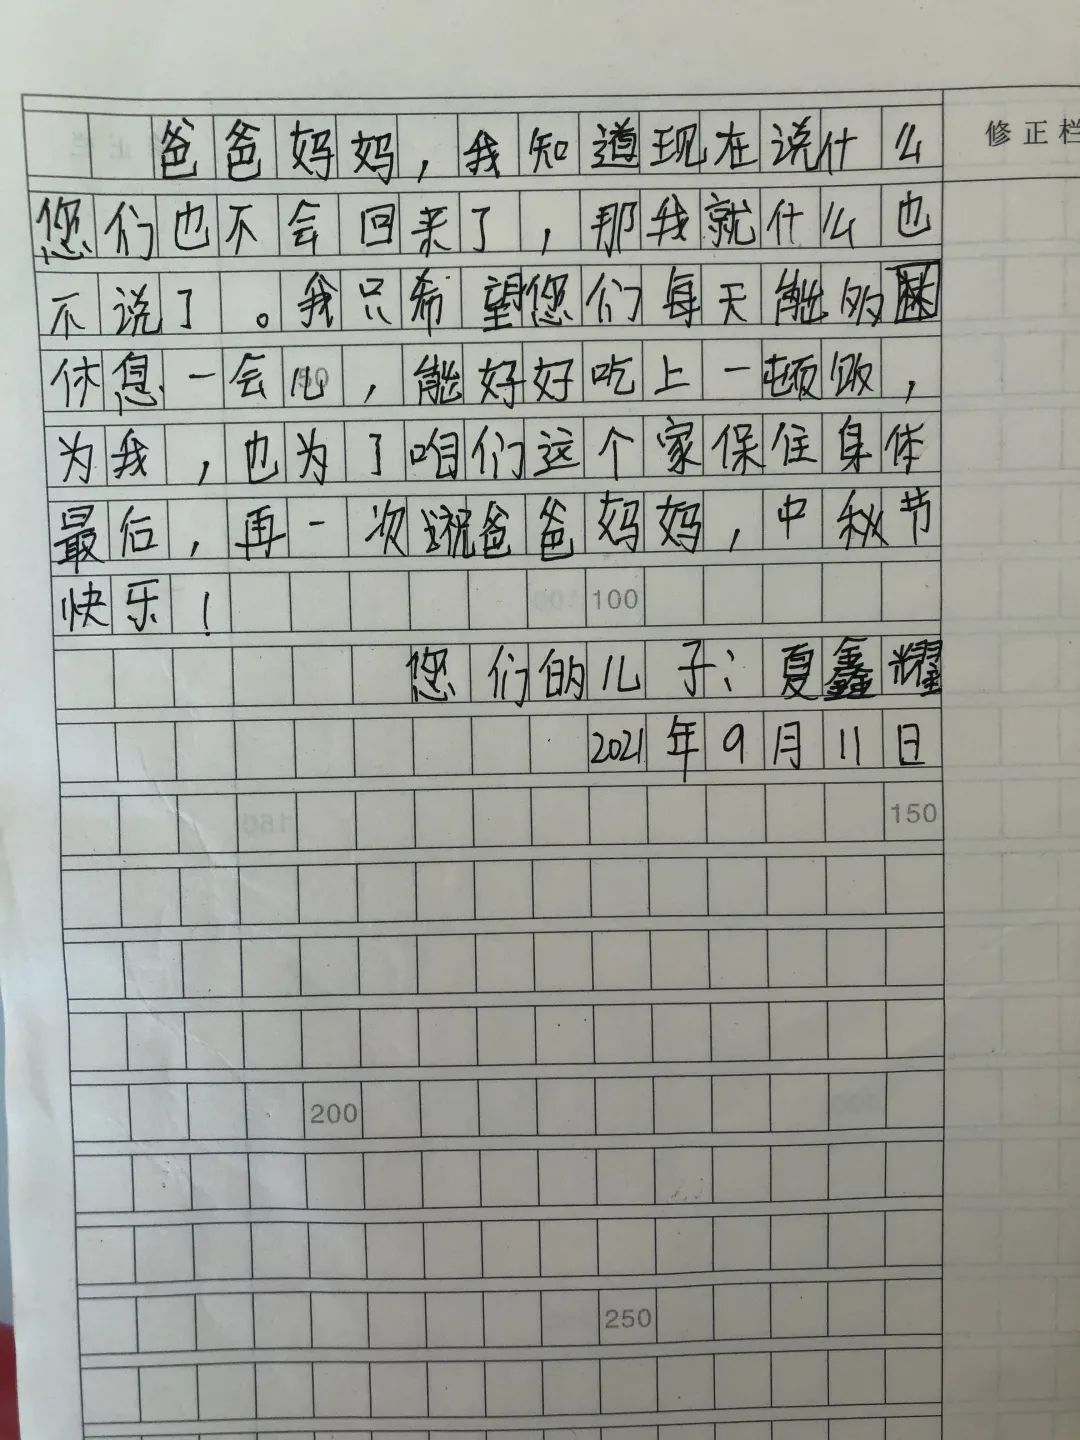 爸爸妈妈，我知道现在说什么
修正栏
您们也不会回来了，那我就什么也
不说了。我只希望您们每天能的
休息一会儿，能好好吃上一顿饭，
50
为我，也为了咱们这个家保住身体
最后，再一次祝爸爸妈妈，中秋节
快乐！
100
您们的儿子：夏鑫耀
2021年9月11日
150
200
250